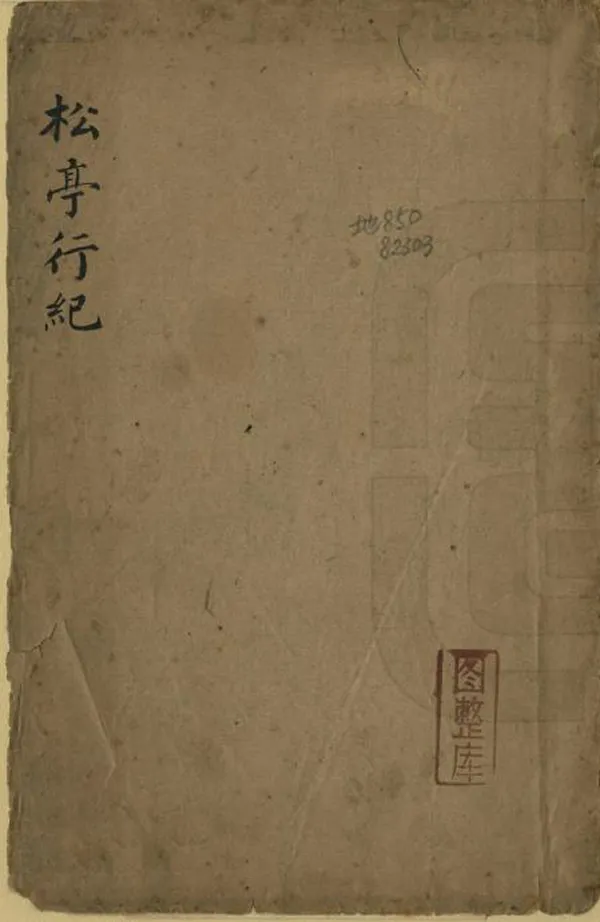 松亭行紀
地850
82303
图整库